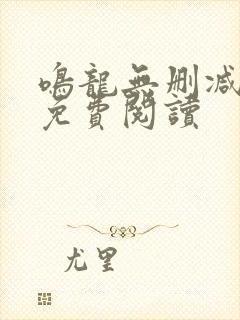 鳴龍無删减
免費閱讀
尤里